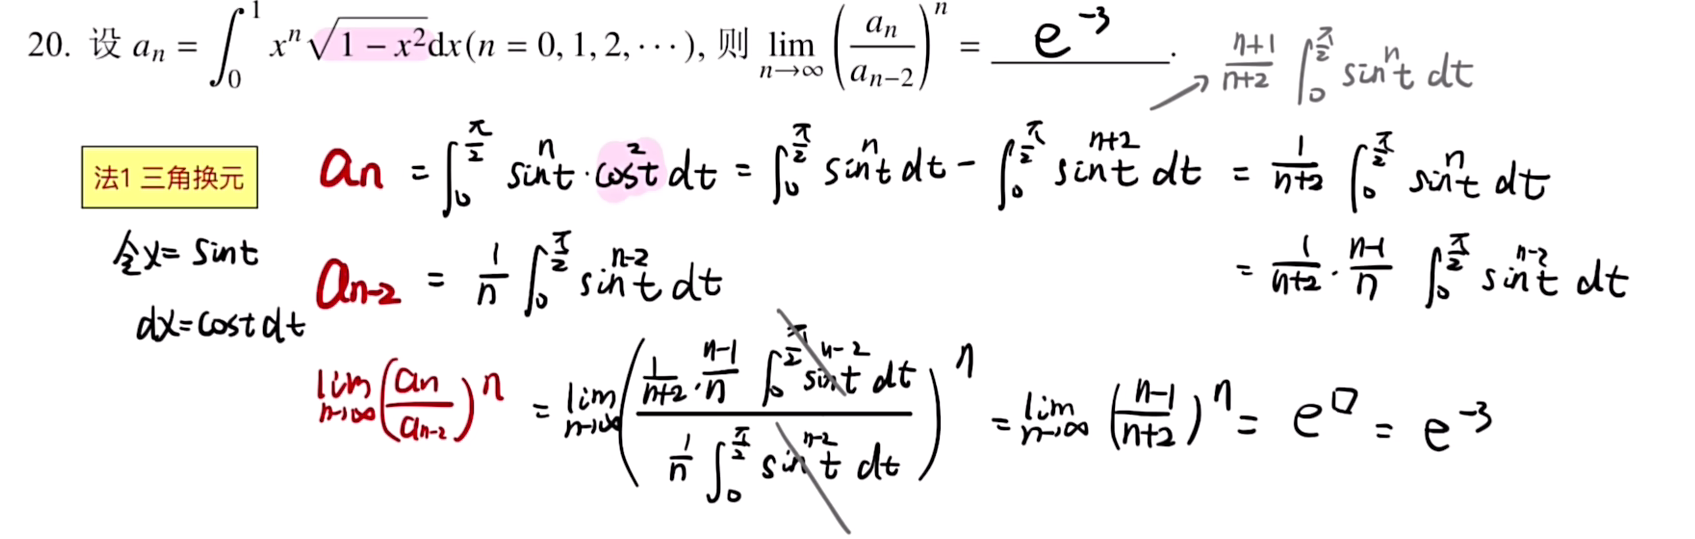 20. 设 aₙ = ∫₀¹ xⁿ√(1 − x²)dx(n = 0, 1, 2, ⋯), 则 lim_{n→∞} (aₙ/aₙ₋₂)ⁿ = e⁻³ .
(n+1)/(n+2) ∫₀^{π/2} sinⁿt dt
法1 三角换元
aₙ = ∫₀^{π/2} sinⁿt · cos²t dt = ∫₀^{π/2} sinⁿt dt − ∫₀^{π/2} sinⁿ⁺²t dt = 1/(n+2) ∫₀^{π/2} sinⁿt dt
= 1/(n+2) · (n−1)/n ∫₀^{π/2} sinⁿ⁻²t dt
令x = sint
dx = cost dt
aₙ₋₂ = 1/n ∫₀^{π/2} sinⁿ⁻²t dt
lim_{n→∞} (aₙ/aₙ₋₂)ⁿ = lim_{n→∞} ((1/(n+2) · (n−1)/n ∫₀^{π/2} sinⁿ⁻²t dt)/(1/n ∫₀^{π/2} sinⁿ⁻²t dt))ⁿ = lim_{n→∞} ((n−1)/(n+2))ⁿ = e^□ = e⁻³